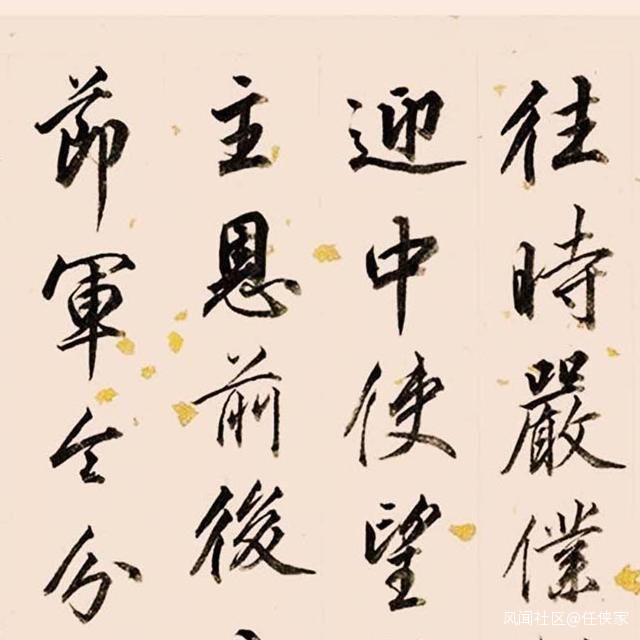 往時嚴僕
迎中使望
主恩前後
節軍令分
风闻社区@任侠家